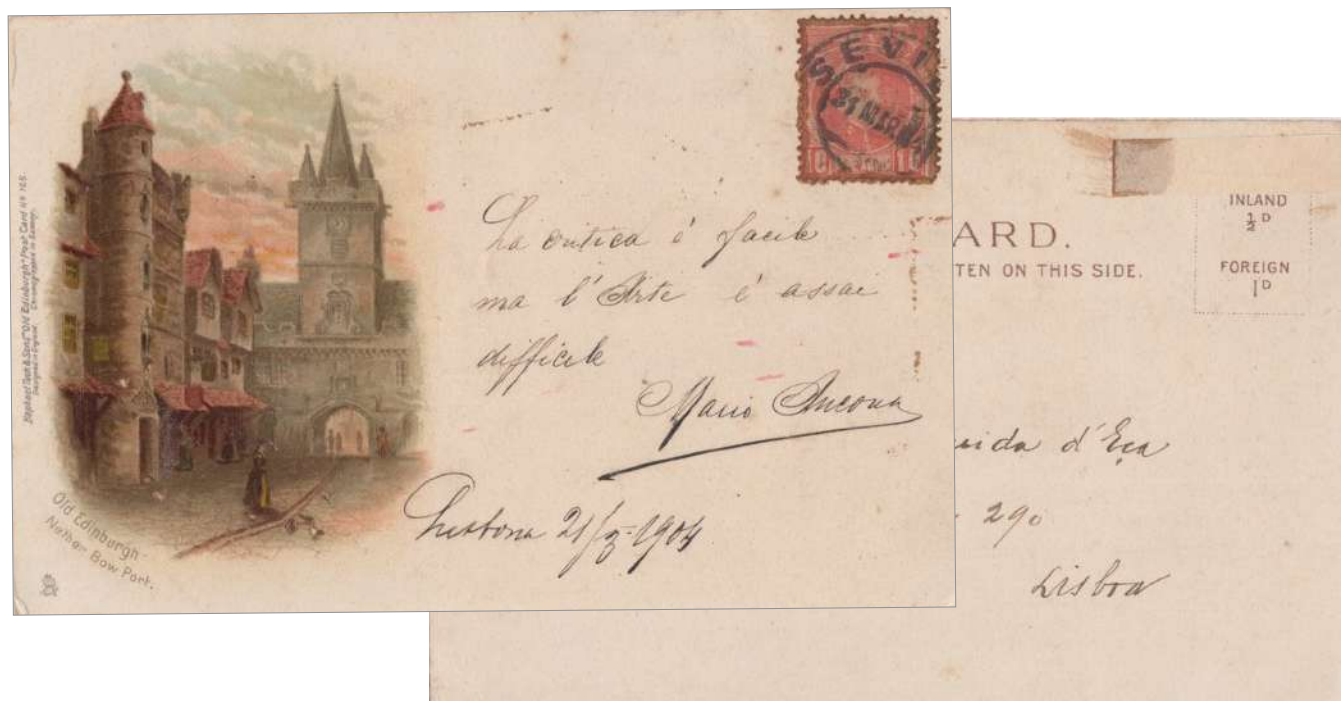 Raphael Tuck & Sons' "Old Edinburgh" Post Card Nº 165.
Designed in England. Chromographed in Saxony.
Old Edinburgh -
Nether Bow Port.
SEVI
31 MAR
La critica è facile
ma l'Arte è assai
difficile
Mario Ancona
Lisbona 21/3-1904
ARD.
TEN ON THIS SIDE.
INLAND
½ D
FOREIGN
1D
eida d'Eça
290
Lisboa